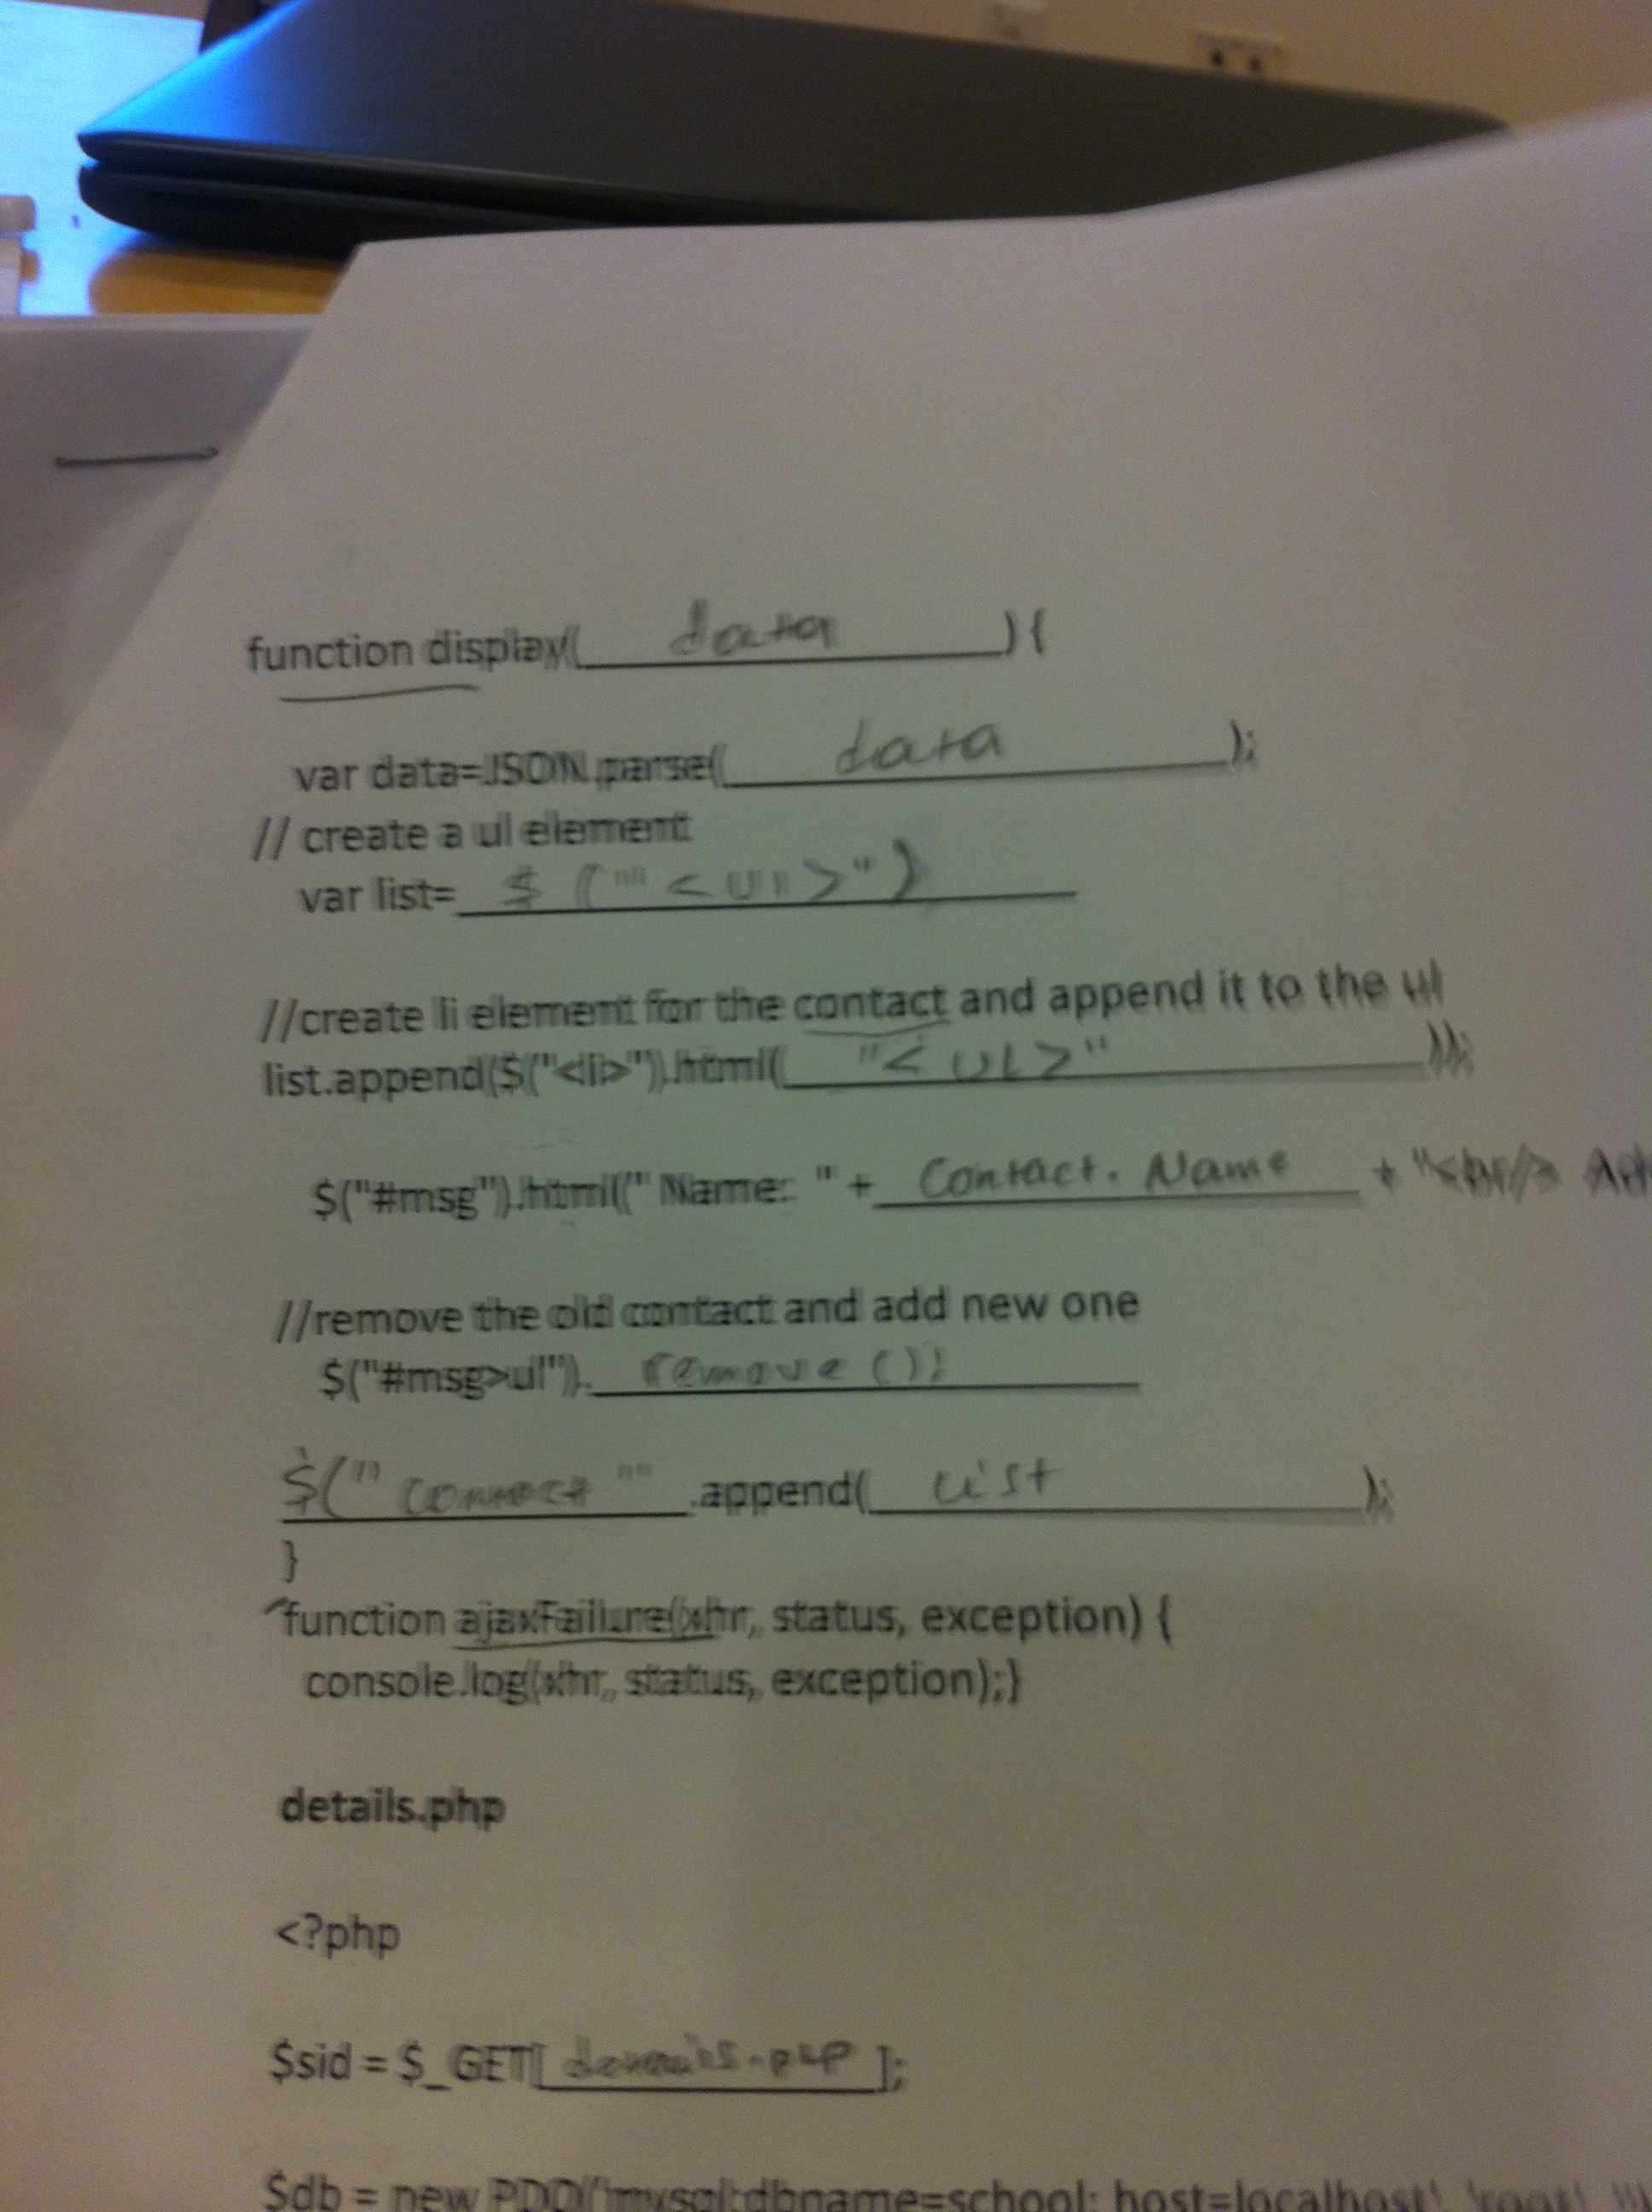 function display( data ) {
var data=JSON.parse( data );
// create a ul element
var list= $ ("<ul>")
//create li element for the contact and append it to the ul
list.append($("<li>").html( "<ul>" ));
$("#msg").html(" Name: " + Contact. Name + "<br/>
//remove the old contact and add new one
$("#msg>ul"). remove ();
$(" " .append( list );
}
function ajaxFailure(xhr, status, exception) {
console.log(xhr, status, exception);}
details.php
<?php
$sid = $_GET[ details.php ];
$db = new PDO('mysql:dbname=school; host=localhost', 'root',